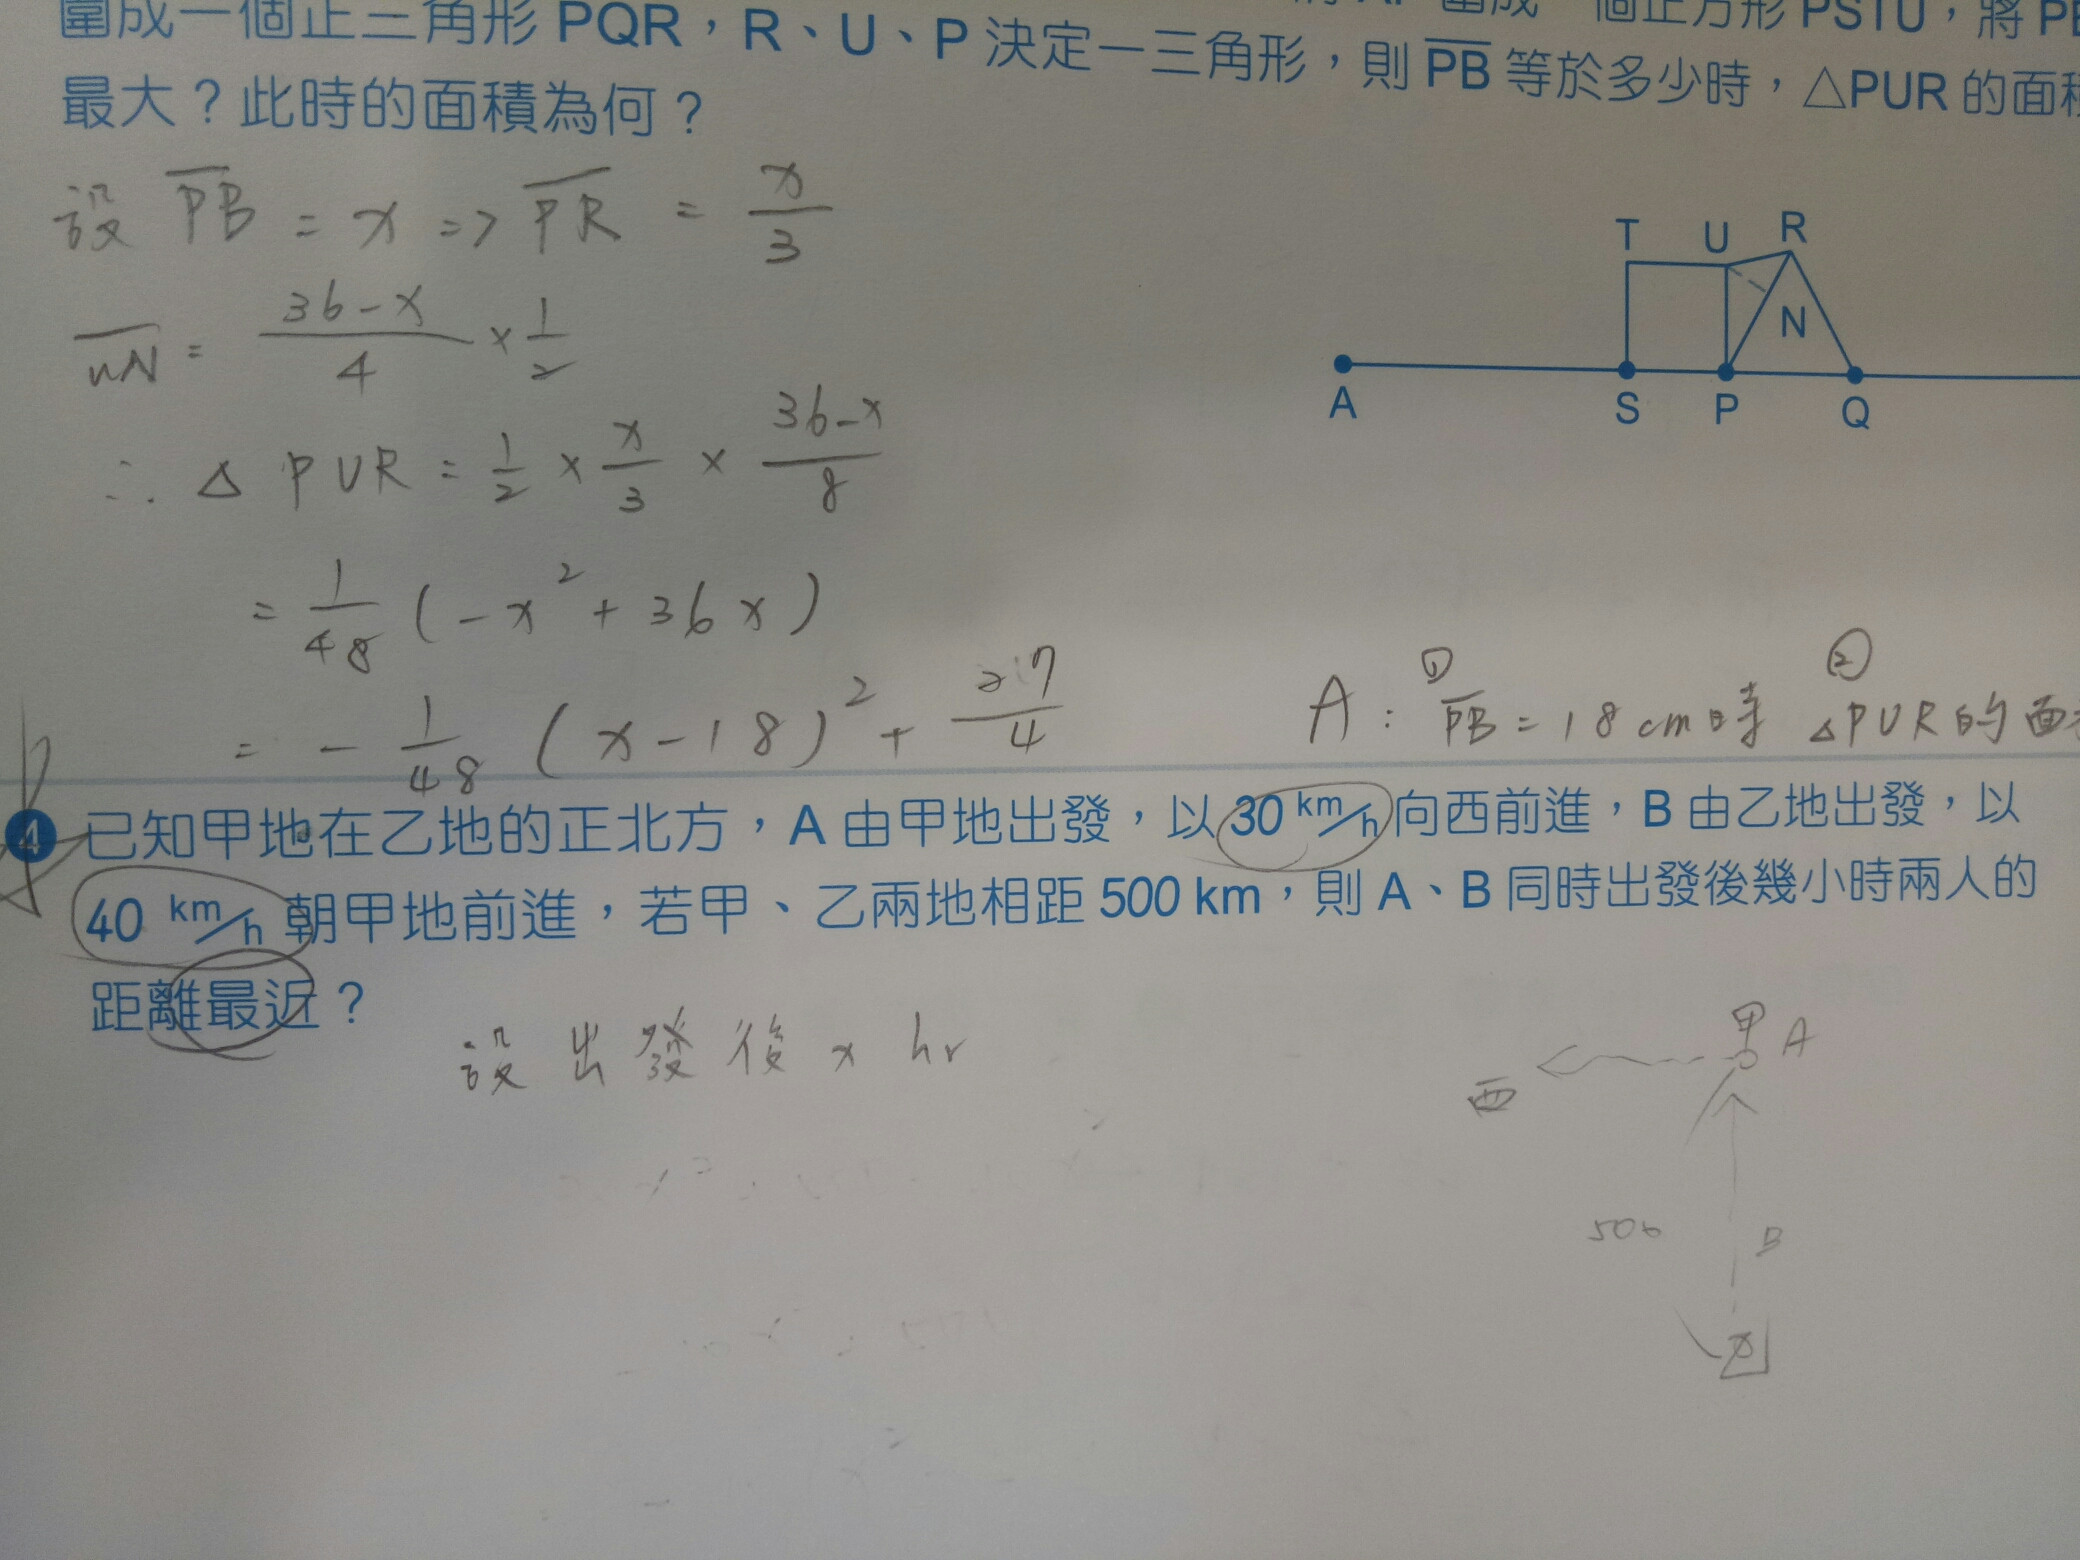 圍成一個正三角形 PQR，R、U、P 決定一三角形，則 PB 等於多少時，△PUR 的面積
個正方形 PSTU，將 PB
最大？此時的面積為何？
設 PB = x => PR = x/3
UN = (36-x)/4 × 1/2
∴ △ PUR = 1/2 × x/3 × (36-x)/8
= 1/48 (-x² + 36x)
= - 1/48 (x-18)² + 27/4
A: ① PB = 18 cm時 ② △PUR的面
T U R
N
A S P Q
4 已知甲地在乙地的正北方，A 由甲地出發，以 30 km/h 向西前進，B 由乙地出發，以
40 km/h 朝甲地前進，若甲、乙兩地相距 500 km，則 A、B 同時出發後幾小時兩人的
距離最近？
設出發後 x hr
甲 A
西
500 B
乙